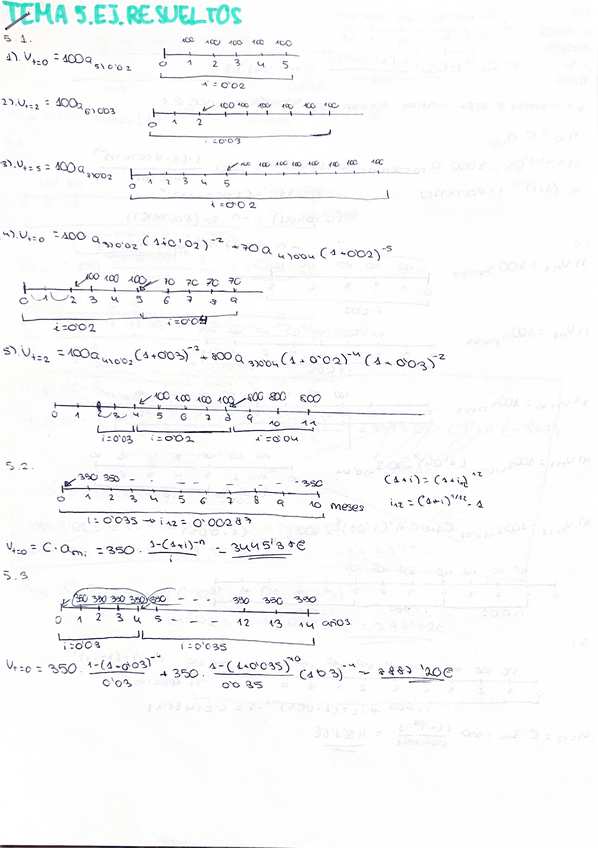 TEMA 5. EJ. RESUELTOS
5.1.
1). V t=0 = 100 a 5⌉0'02
100 100 100 100 100
0 1 2 3 4 5
i = 0'02
2). V t=2 = 100 a 6⌉0'03
100 100 100 100 100 100
0 1 2
i = 0'03
3). V t=5 = 100 a 7⌉0'02
100 100 100 100 100 100 100
0 1 2 3 4 5
i = 0'02
4). V t=0 = 100 a 3⌉0'02 (1+0'02)^-2 + 70 a 4⌉0'04 (1+0'02)^-5
100 100 100 70 70 70 70
0 1 2 3 4 5 6 7 8 9
i = 0'02 i = 0'04
5). V t=2 = 100 a 4⌉0'02 (1+0'03)^-2 + 800 a 3⌉0'04 (1+0'02)^-4 (1+0'03)^-2
100 100 100 100 800 800 800
0 1 2 3 4 5 6 7 8 9 10 11
i = 0'03 i = 0'02 i = 0'04
5.2.
350 350 - - - - - - - 350
0 1 2 3 4 5 6 7 8 9 10 meses
i = 0'035 → i12 = 0'00287
(1+i) = (1+i12)^12
i12 = (1+i)^1/12 - 1
V t=0 = C · a n⌉i = 350 · 1-(1+i)^-n / i = 3445'37€
5.3
350 350 350 350 350 - - - 350 350 350
0 1 2 3 4 5 - - - 12 13 14 años
i = 0'03 i = 0'035
V t=0 = 350 · 1-(1+0'03)^-4 / 0'03 + 350 · 1-(1+0'035)^-10 / 0'035 (1'03)^-4 =